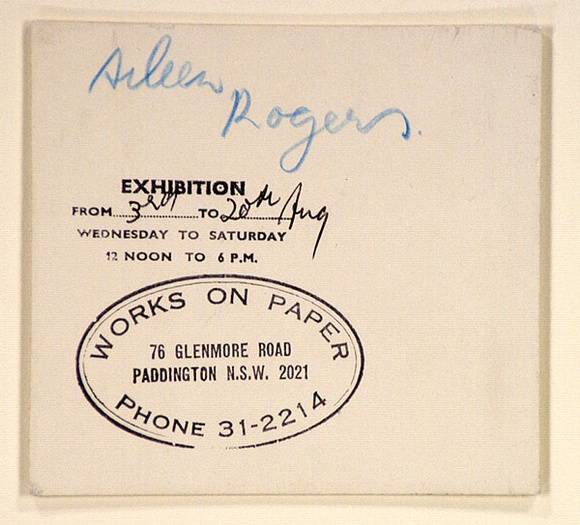 Aileen
Rogers.
EXHIBITION
FROM 3rd TO 20th Aug
WEDNESDAY TO SATURDAY
12 NOON TO 6 P.M.
WORKS ON PAPER
76 GLENMORE ROAD
PADDINGTON N.S.W. 2021
PHONE 31-2214